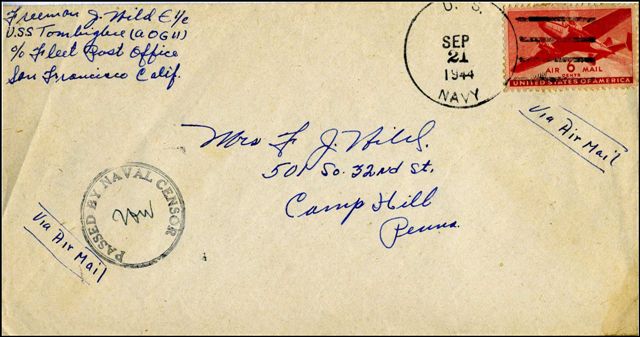 Freeman J. Wild E 1/c
USS Tombigbee (AOG 11)
c/o Fleet Post Office
San Francisco Calif.
U. S.
SEP
21
1944
NAVY
AIR 6 MAIL
CENTS
UNITED STATES OF AMERICA
Via Air Mail
Mrs F. J. Wild.
501 So. 32nd St.
Camp Hill
Penna.
PASSED BY NAVAL CENSOR
Via Air Mail